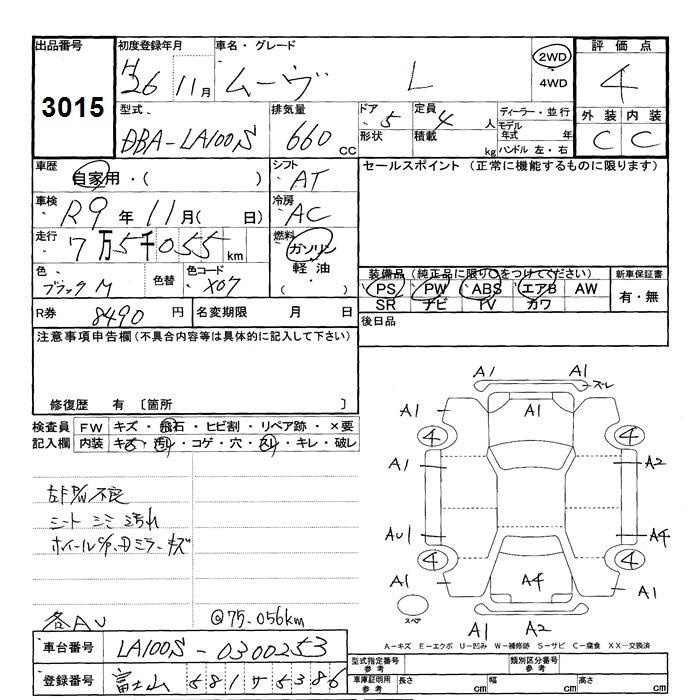 出品番号 初度登録年月 車名・グレード 評価点
3015 H26 11月 ムーヴ L 2WD 4
・4WD
外装 内装
C C
型式 排気量 ドア 定員 ディーラー・並行
DBA-LA100S 660CC 5 4人 モデル年式 年
形状 積載 kg ハンドル 左・右
車歴 シフト セールスポイント (正常に機能するものに限ります)
自家用・( ) AT
車検 冷房
R9年11月( 日) AC
走行 燃料
7万5千055km ガソリン
軽油
( )
色 色替 色コード
ブラックM X07
装備品 (純正品に限り○をつけてください) 新車保証書
PS PW ABS エアB AW 有・無
SR ナビ TV カワ
R券 8490円 名変期限 月 日 後日品
注意事項申告欄 (不具合内容等は具体的に記入して下さい)
修復歴 有 〔箇所 〕
検査員 FW キズ・飛石・ヒビ割・リペア跡・×要
記入欄 内装 キズ・汚れ・コゲ・穴・スレ・キレ・破レ
左F P/W 不良
シート シミ 汚れ
ホイールC/P、Dミラーキズ
各AU @75.056km
A1 A1 ズレ
A1 A1 A1
4 4
A1 A2
AU1 A4
4 4
A1 A4 A1
スペア
A1 A2
A-キズ E-エクボ U-凹み W-補修跡 S-サビ C-腐食 XX-交換済
車台番号 LA100S-0300253
型式指定番号 参考 類別区分番号 参考
登録番号 富士山 581 サ 5386
車庫証明用 参考 長さ cm 幅 cm 高さ cm